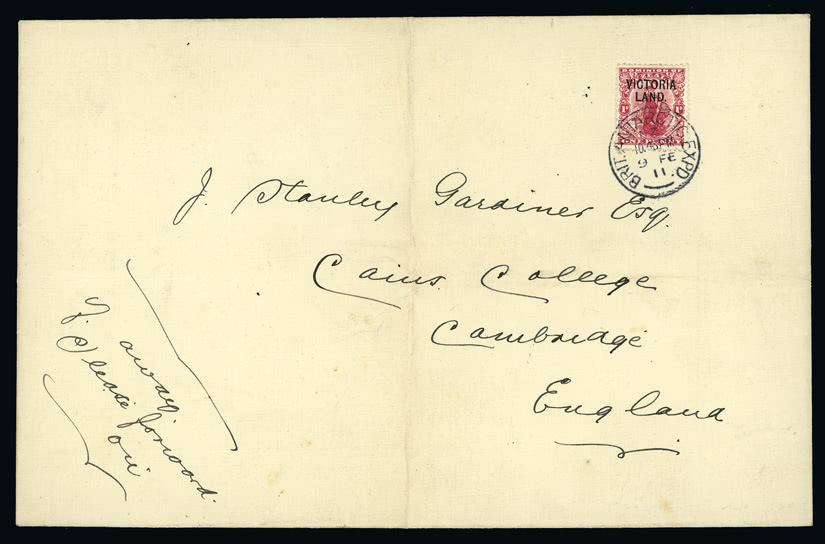 DOMINION OF
VICTORIA
LAND.
1d 1d
BRIT. ANTARCTIC EXPD.
9 FE
11
J. Stanley Gardiner Esq.
Caius College
Cambridge
England
If away
Please forward
on